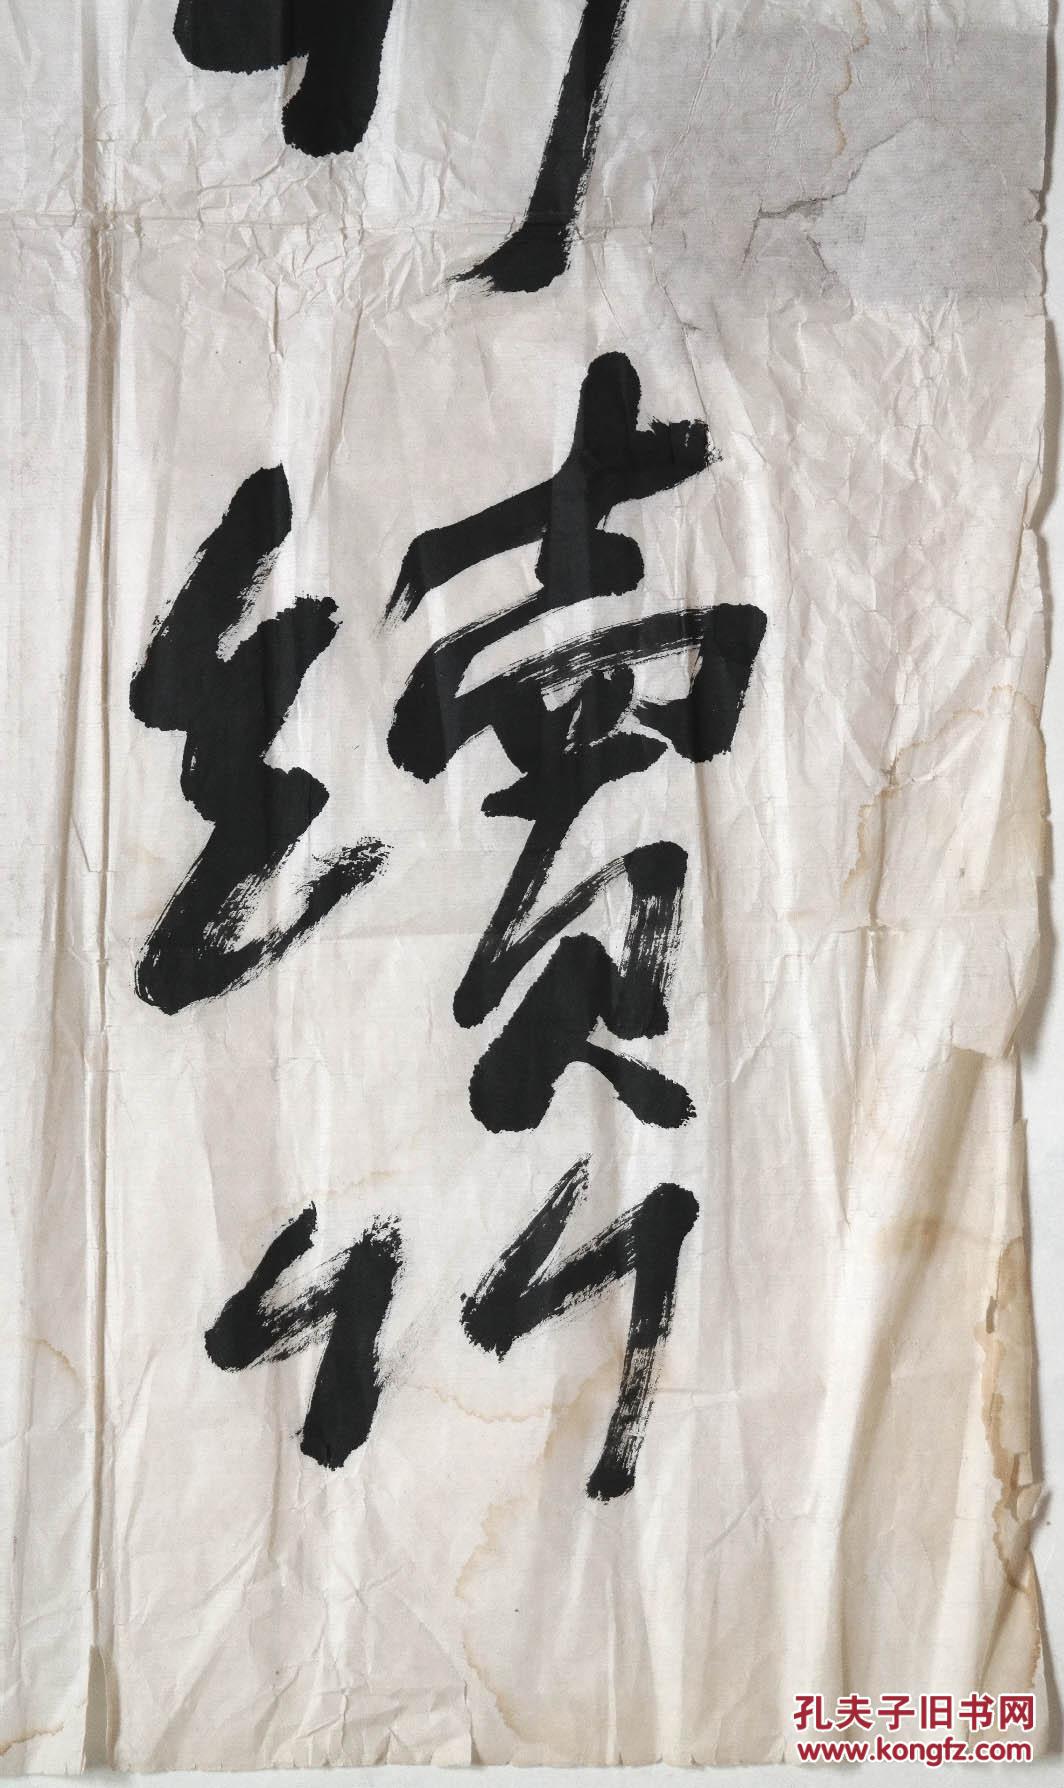 續
竹
孔夫子旧书网
www.kongfz.com